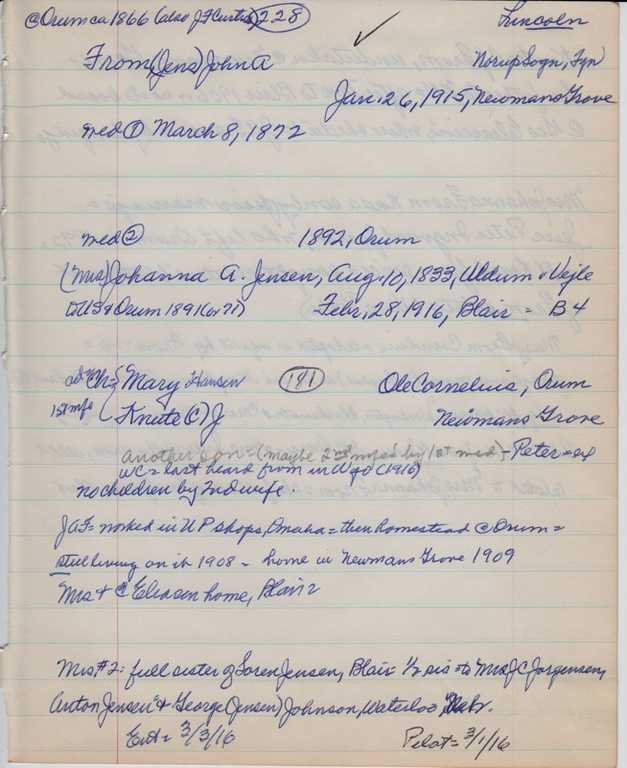 @Orum ca 1866 (also J F Curtis) 228 Lincoln
From, (Jens) John A Norup Sogn, Fyn
Jan. 26, 1915, Newmans Grove
med ① March 8, 1872
med ② 1892, Orum
(Mrs) Johanna A. Jensen, Aug. 10, 1833, Uldum, Vejle
to US & Orum 1891 (or 71) Febr. 28, 1916, Blair = B4
ad "Ch" { Mary Hansen 181 Ole Cornelius, Orum
1st mfe { Knute C) J Newmans Grove
another son = (maybe 2nd by 1st med) - Peter =
WC = last heard from in (1916)
no children by 2nd wife.
JAF = worked in UP shops, Omaha = then homestead @ Orum =
still living on it 1908 - home in Newmans Grove 1909
Mrs + @ Eliasen home, Blair
Mrs #2: full sister of Soren Jensen, Blair = 1/2 sis = to Mrs J C Jorgensen,
Anton Jensen & George (Jensen) Johnson, Waterloo, Nebr.
Ent = 3/3/16 Pilot = 3/1/16